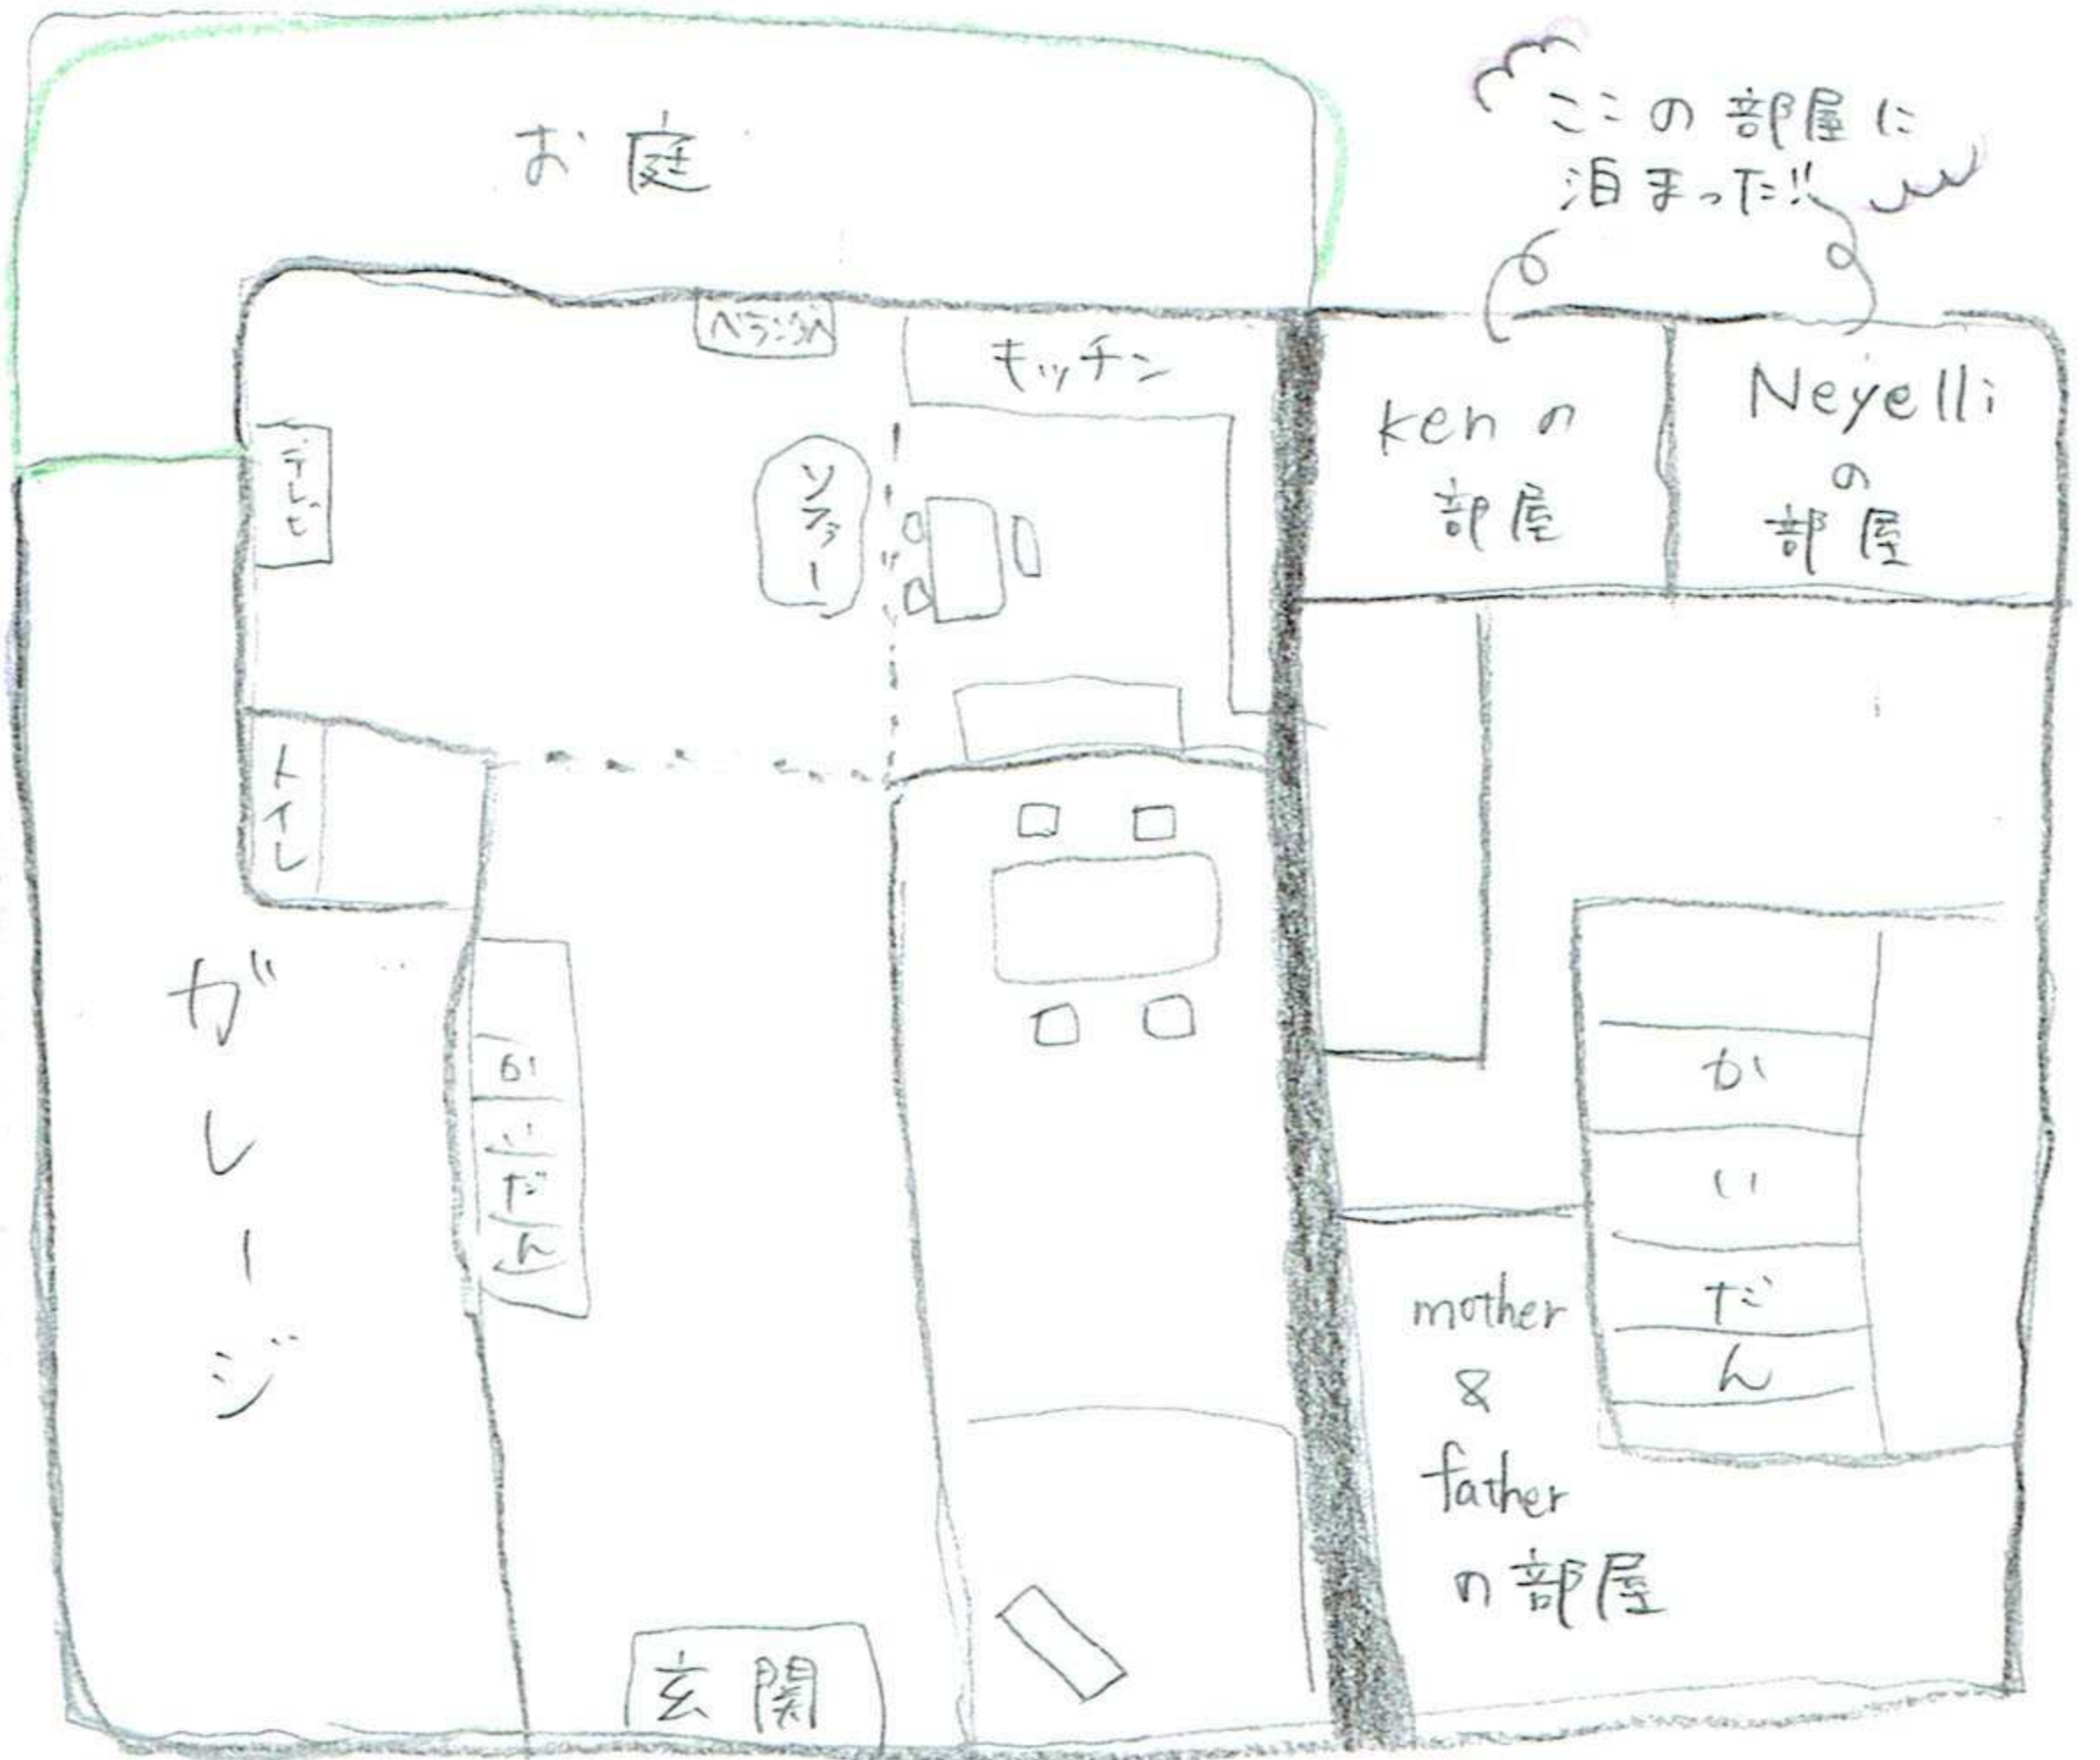 お庭
ここの部屋に
泊まった!!
ベランダ
キッチン
kenの
部屋
Neyelli
の
部屋
テレビ
ソファー
トイレ
ガレージ
かいだん
かいだん
mother
&
father
の部屋
玄関